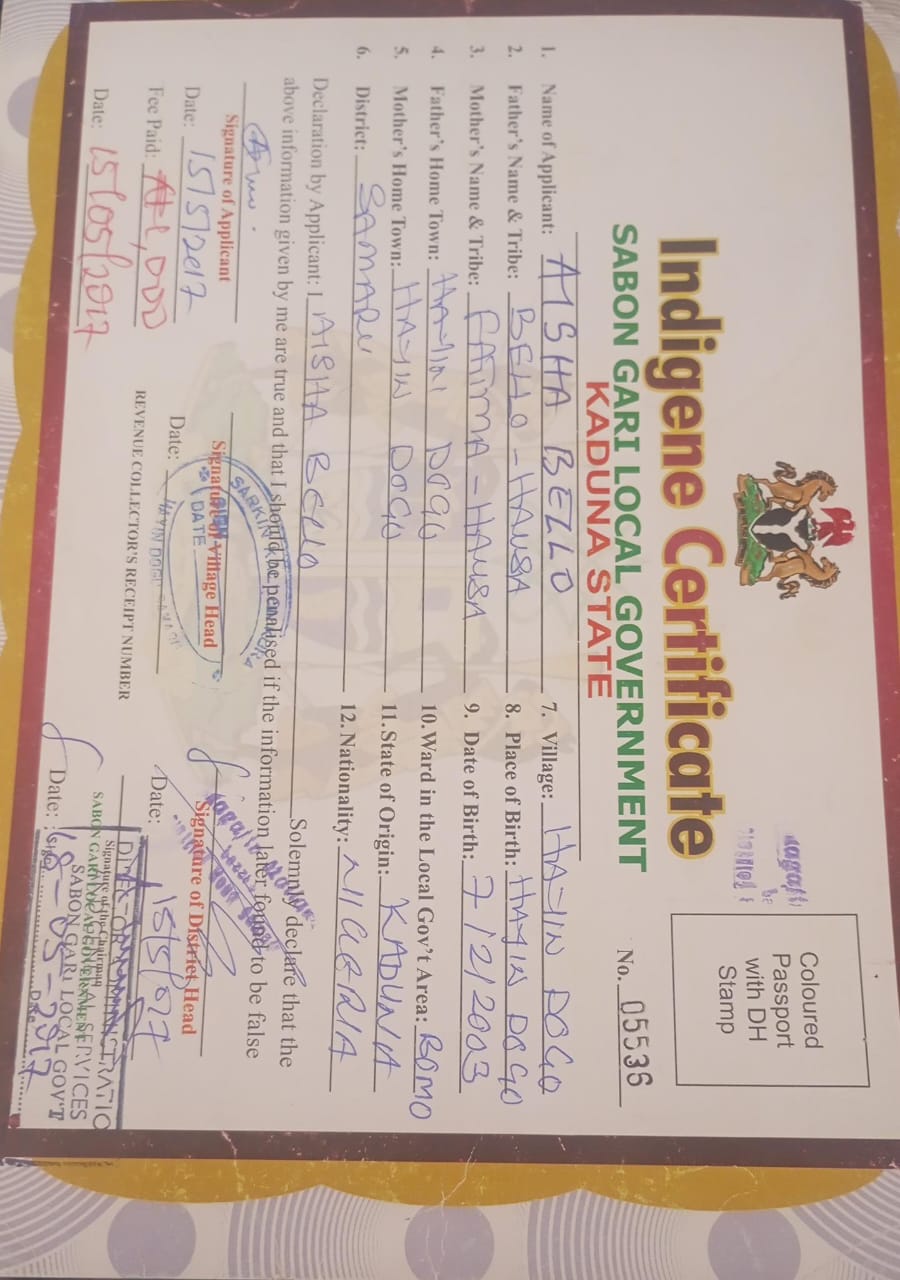 Indigene Certificate
SABON GARI LOCAL GOVERNMENT
KADUNA STATE
Coloured
Passport
with DH
Stamp
No. 05536
1. Name of Applicant: AISHA BELLO
2. Father's Name & Tribe: BELLO - HAUSA
3. Mother's Name & Tribe: FATIMA - HAUSA
4. Father's Home Town: HAYIN DOGO
5. Mother's Home Town: HAYIN DOGO
6. District: SAMARU
7. Village: HAYIN DOGO
8. Place of Birth: HAYIN DOGO
9. Date of Birth: 7/2/2003
10. Ward in the Local Gov't Area: BOMO
11. State of Origin: KADUNA
12. Nationality: NIGERIA
Declaration by Applicant: I AISHA BELLO Solemnly declare that the
above information given by me are true and that I should be penalised if the information later found to be false
Signature of Applicant
Date: 15/5/2017
Fee Paid: ₦1,000
Date: 15/05/2017
SARKIN
SIGN
Signature of Village Head
DATE
HAYIN DOGO
Date:
REVENUE COLLECTOR'S RECEIPT NUMBER
Signature of District Head
Date: 15/5/017
Signature of the Chairman
SABON GARI LOCAL GOVERNMENT
SABON GARI LOCAL GOV'T
Date: 18-05-2017